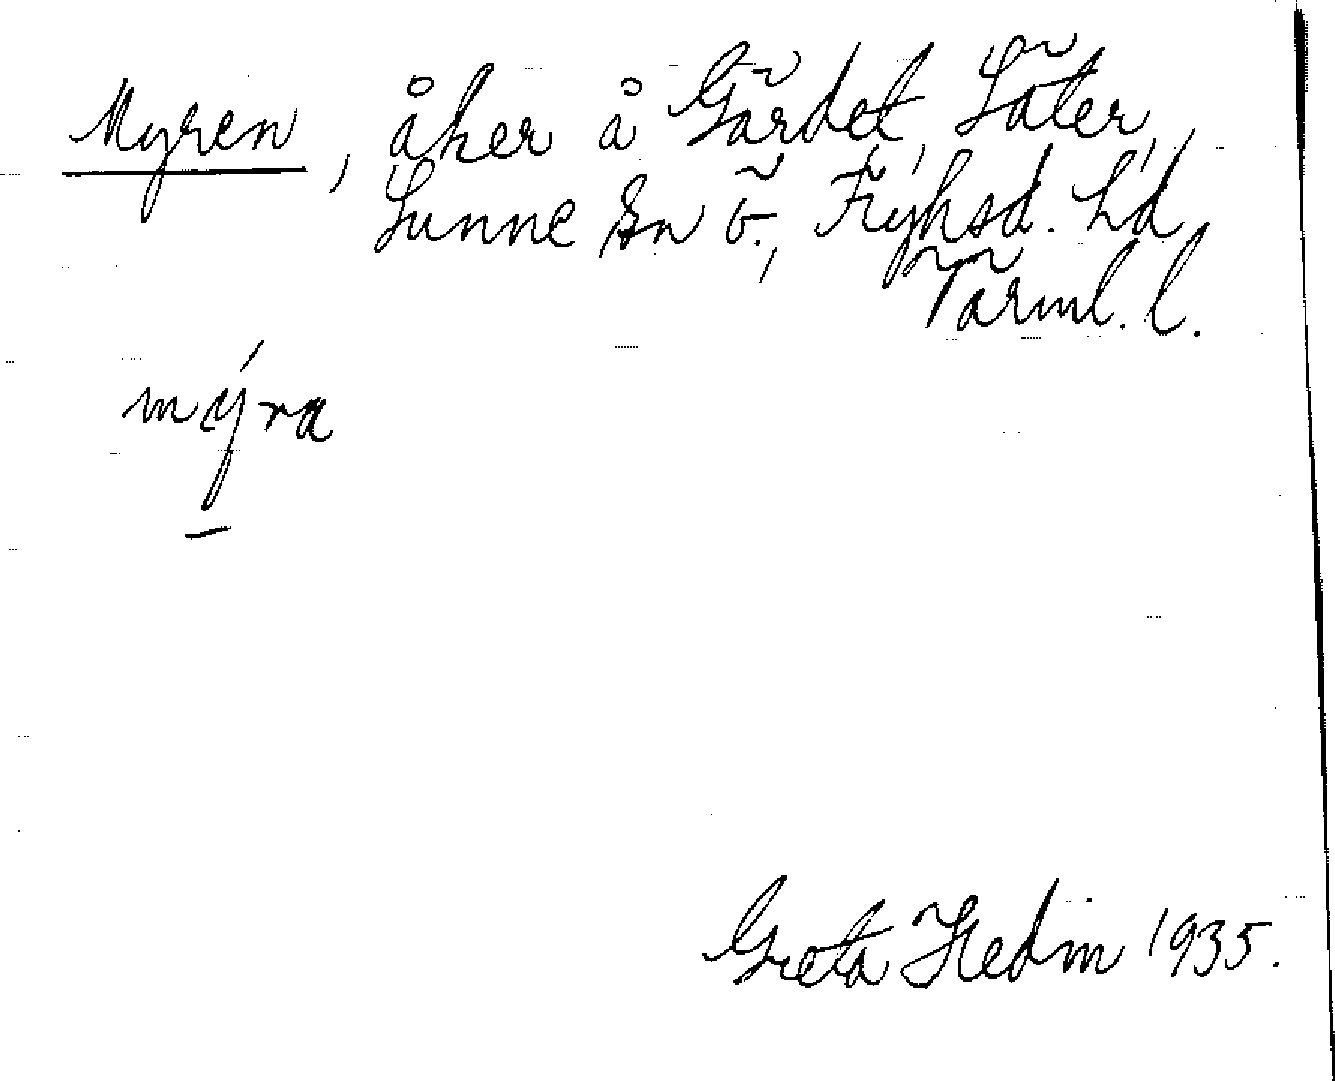 Myren, åker å Gärdet, Säter,
Sunne sn ö., Fryksd. hd,
Värml. l.
mýra
Greta Hedin 1935.